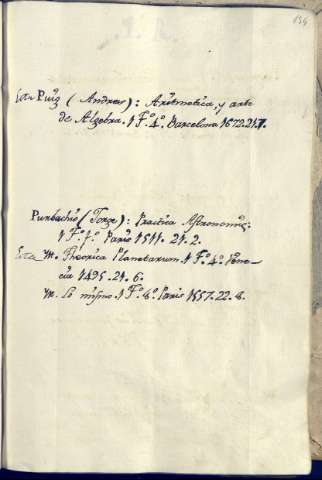 134
Esta Puig (Andres): Aritmetica, y arte
de Algebra. 1 Tº. 4º. Barcelona 1672. 21. 7.
Purbachio (Jorge): Practica Astronomiæ.
1 Tº. fº. Paris 1511. 21. 2.
Esta Yt. Theorica Planetarum. 1 Tº. 4º. Vene-
cia 1495. 21. 6.
Yt. Lo mismo. 1 Tº. 8º. Paris 1557. 22. 8.